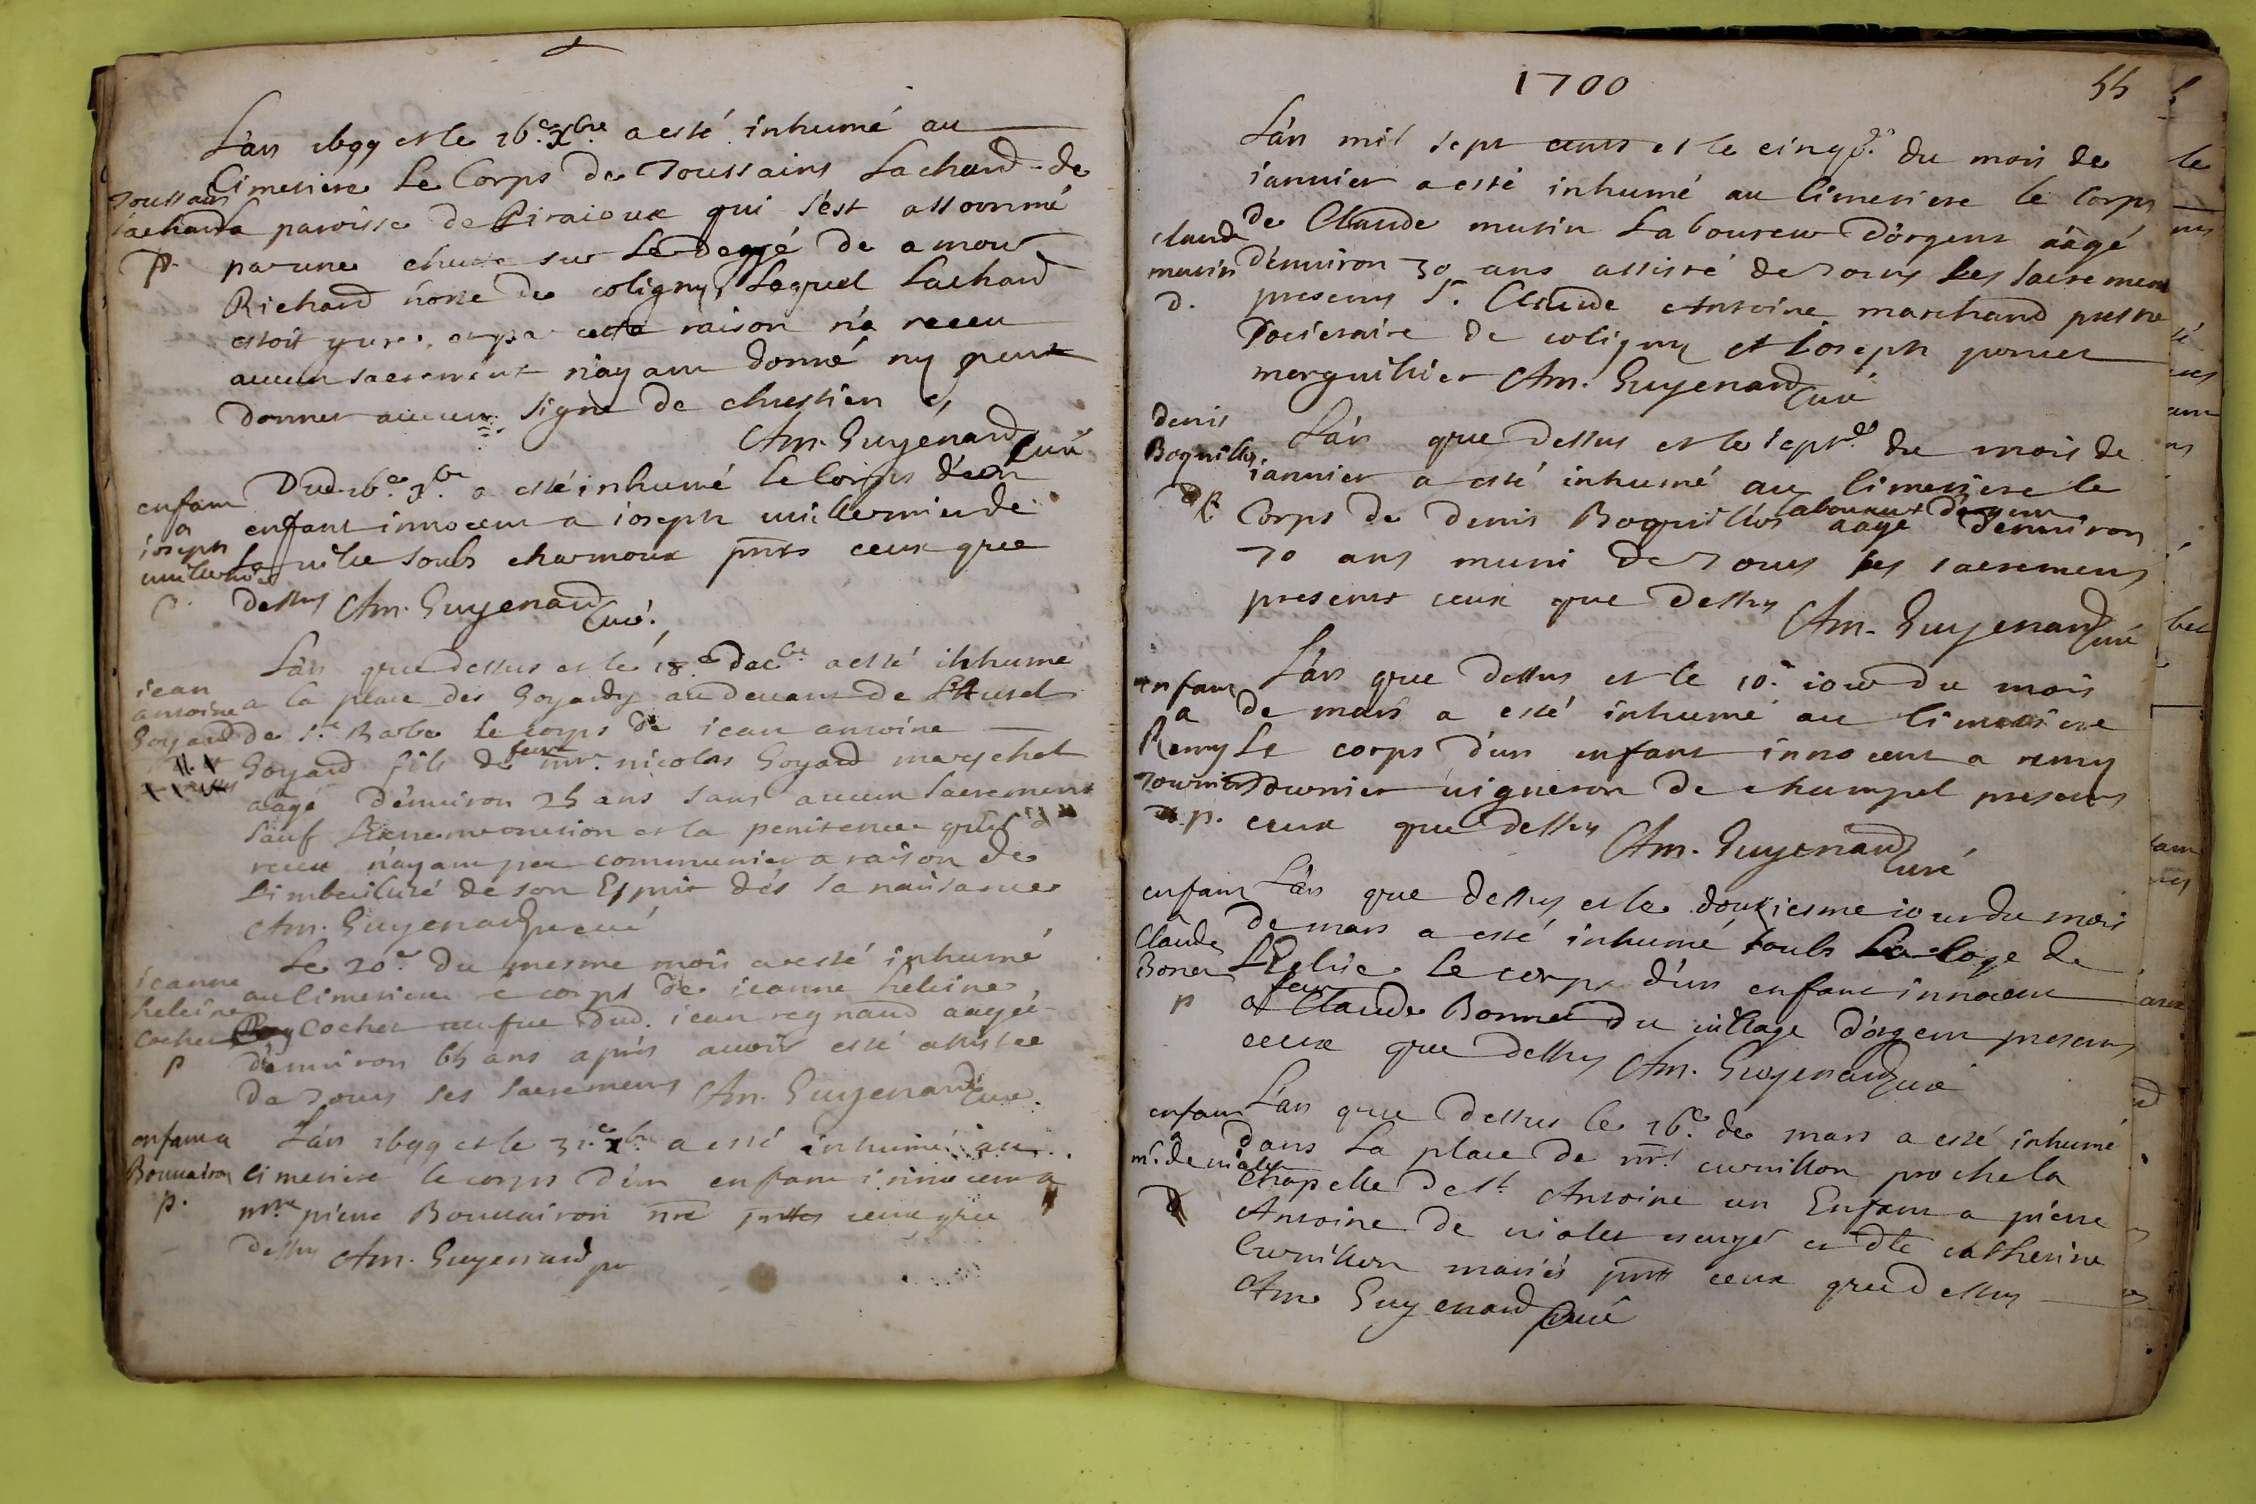 L'an 1699 et le 16e. xbre. a esté inhumé au
Cimetiere Le Corps de Toussaint Lachard de
Toussain
Lachard
p.
La paroisse de Piraioux qui s'est assommé
par une chute sur Le degré de amour
Richard hoste de coligny, Lequel Lachard
estoit yure, et par cette raison n'a receu
aucun sacrement n'ayant donné ny peut
donner aucun signe de chrestien
Am. Guyenard Curé
enfant
a
ioseph
uuillermin
p.
Dud. 16e. xbre. a esté inhumé le Corps d'un
enfant innocent a ioseph uuillermin de
La uille soubs charmoux pnts ceux que
dessus Am. Guyenard Curé.
iean
antoine
Goyard
L'an que dessus et le 18.e decbe. a esté inhumé
a la place des Goyards au deuant de L'Autel
de Ste. Barbe le corps de iean antoine
Goyard fils de feu mre. nicolas Goyard
aagé d'enuiron 25 ans sans aucun Sacrement
sauf L'Extremeonction et la penitence qu'il a
receu n'ayant peu communier a raison de
L'imbecilité de son Esprit dés sa naissance
Am. Guyenard curé
ieanne
heleine
Cocher
p
Le 20e. du mesme mois a esté inhumé
au Cimetiere le corps de ieanne heleine
Cocher ueufue dud. iean regnaud aagée
d'enuiron 65 ans apris auoir esté assistée
de tous ses sacremens Am. Guyenard Curé.
enfant a
Bouuairon
p.
L'an 1699 et le 31.e xbe. a esté inhumé au
Cimetiere le corps d'un enfant innocent a
mre pierre Bouuairon nre pntes ceux que
dessus Am. Guyenard
1700
55
L'an mil sept cents et le cinqe. du mois de
ianuier a esté inhumé au Cimetiere le Corps
claude
mutin
d.
de Claude mutin Laboureur d'orgent aagé
d'enuiron 30 ans assisté de tous Les sacremens
presents Sr. Claude Antoine marchand prestre
Societaire de coligny et Joseph
marguillier Am. Guyenard Curé
denis
Boquillos.
L'an que dessus et le septe. du mois de
ianuier a esté inhumé au Cimetiere le
laboureur d'orgent
Corps de denis Boquillos aagé d'enuiron
70 ans muni de tous ses sacremens
presents ceux que dessus Am. Guyenard Curé
enfant
a
Remy
Tournier
p.
L'an que dessus et le 10e. iour du mois
de mars a esté inhumé au Cimetiere
Le corps d'un enfant innocent a remy
Tournier uigneron de champel presents
ceux que dessus Am. Guyenard Curé
enfant
a
Claude
Bonet
p
L'an que dessus et le douziesme iour du mois
de mars a esté inhumé soubs La loge de
L'Eglise Le corps d'un enfant innocent
a feu Claude Bonnet du uillage d'orgent presents
ceux que dessus Am. Guyenard Curé
enfant
a
mr. de uiolet
d
L'an que dessus le 16e. de mars a esté inhumé
dans La place de mrs. curuillon proche la
Chapelle de St. Antoine un Enfant a pierre
Antoine de uiolet escuyer et dlle catherine
Curuillon mariés pnts ceux que dessus
Am Guyenard Curé